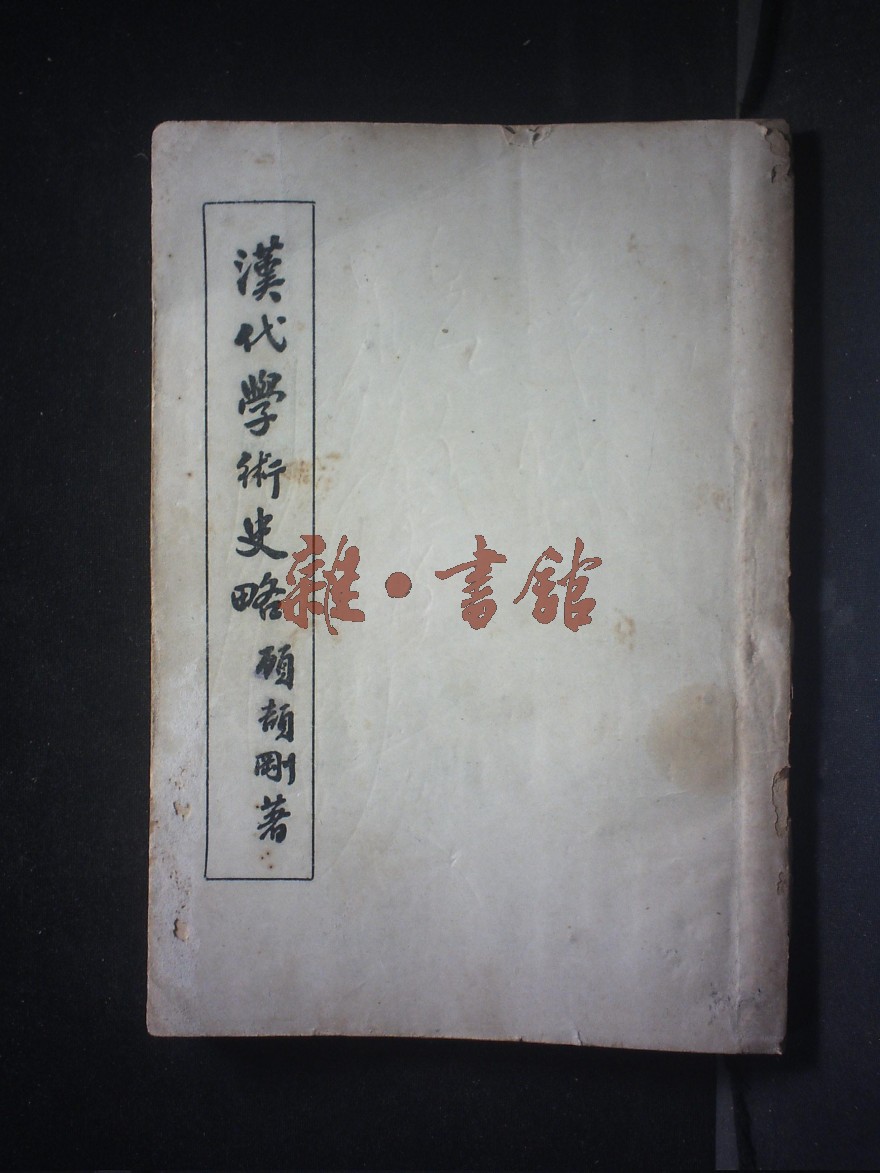 漢代學術史略 顧頡剛著
雜·書館